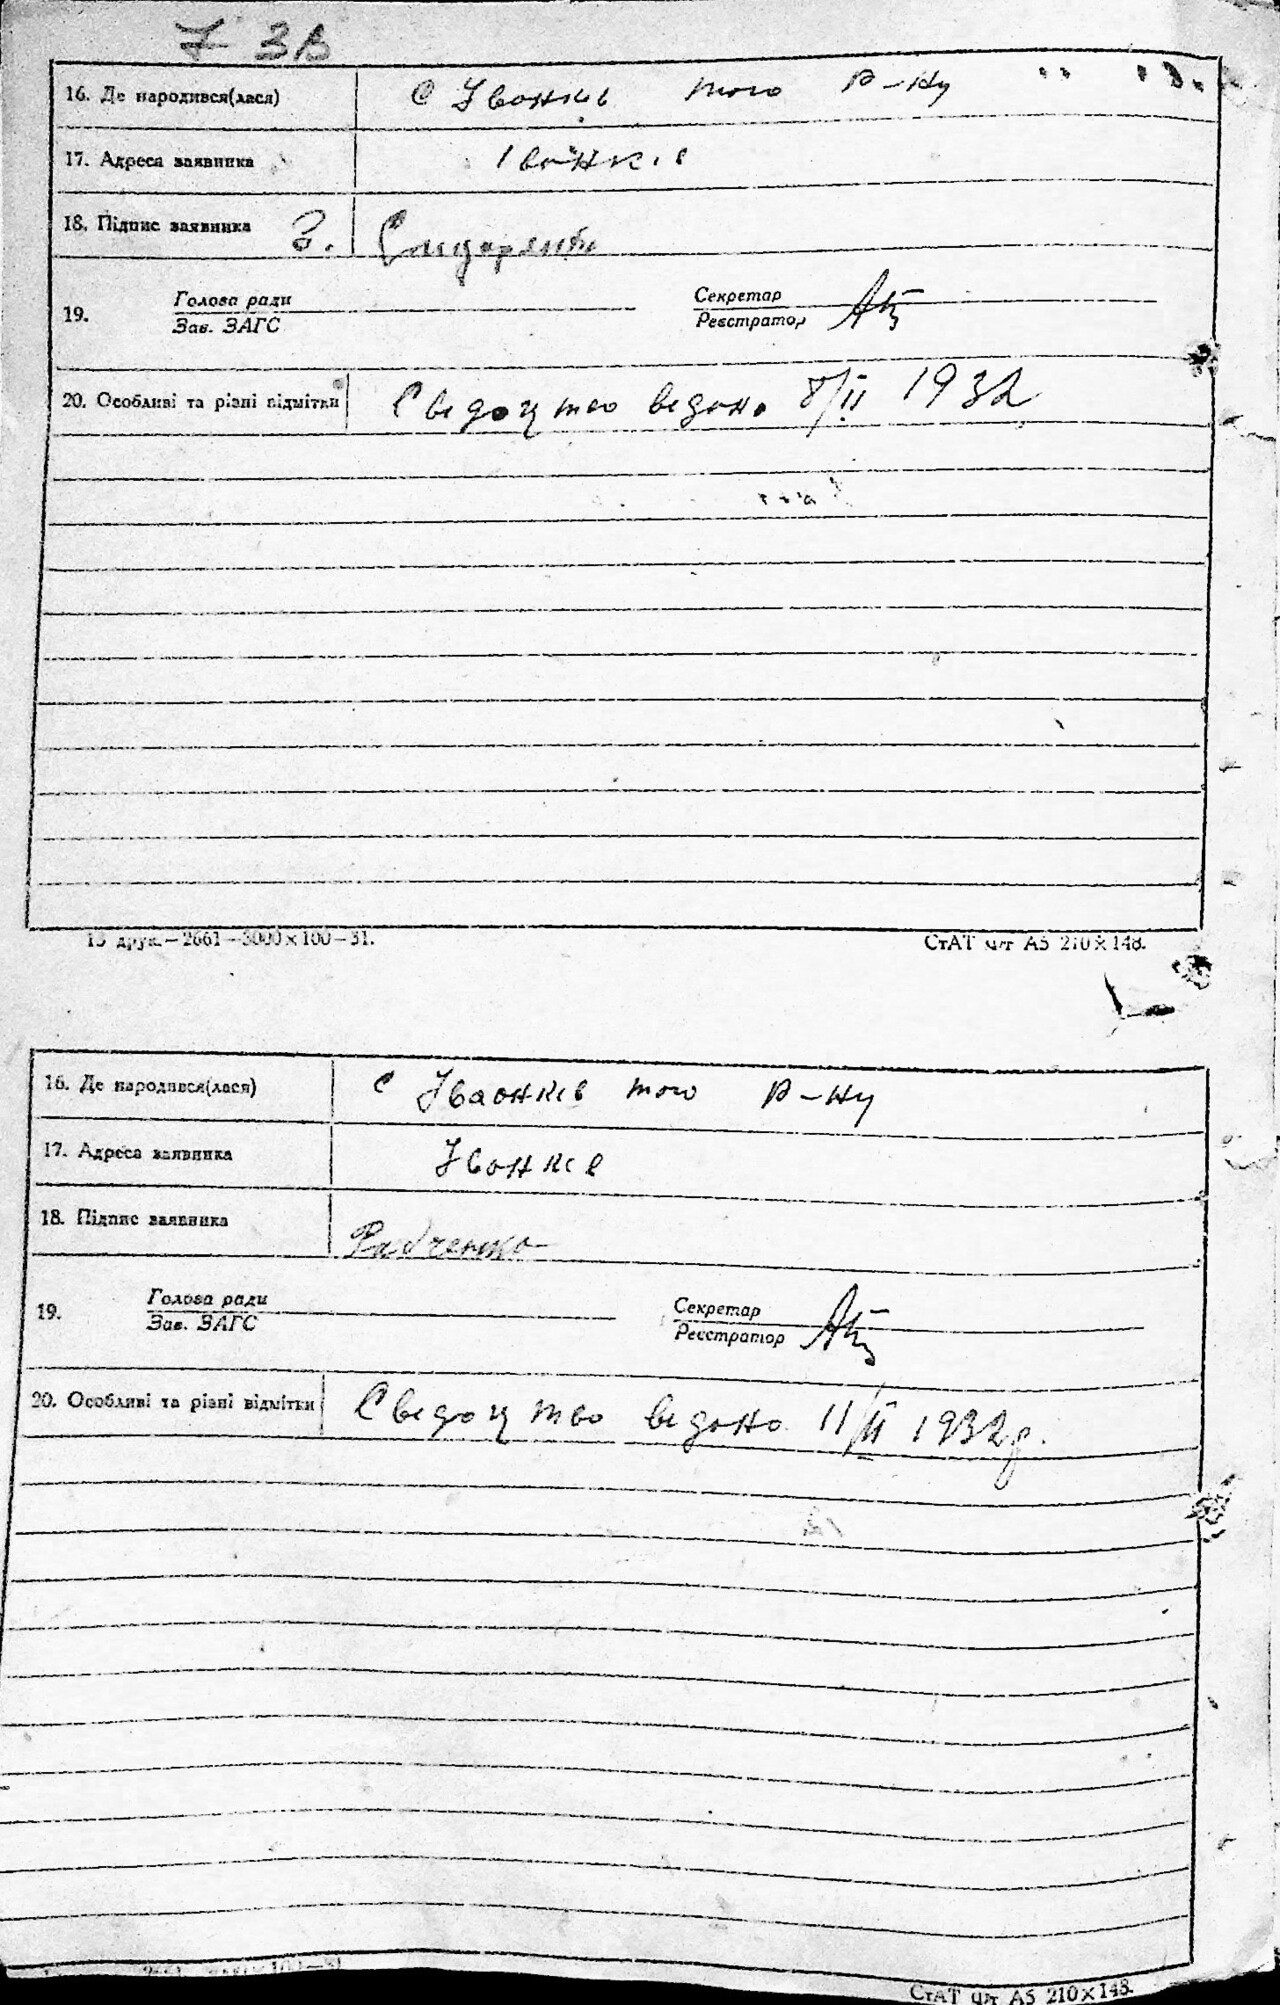 7 зв
16. Де народився(лася) с Іванків того р-ну
17. Адреса заявника Іванків
18. Підпис заявника З.
19. Голова ради Секретар
Зав. ЗАГС Реєстратор
20. Особливі та різні відмітки Сведоцтво ведано 8/II 1932
15 друк.—2661—3000×100—31. СтАТ ч/т А5 210×148.
16. Де народився(лася) с Іваонків того р-ну
17. Адреса заявника Іванків
18. Підпис заявника Радченко
19. Голова ради Секретар
Зав. ЗАГС Реєстратор
20. Особливі та різні відмітки Сведоцтво ведано 11/II 1932р.
СтАТ ч/т А5 210×148.